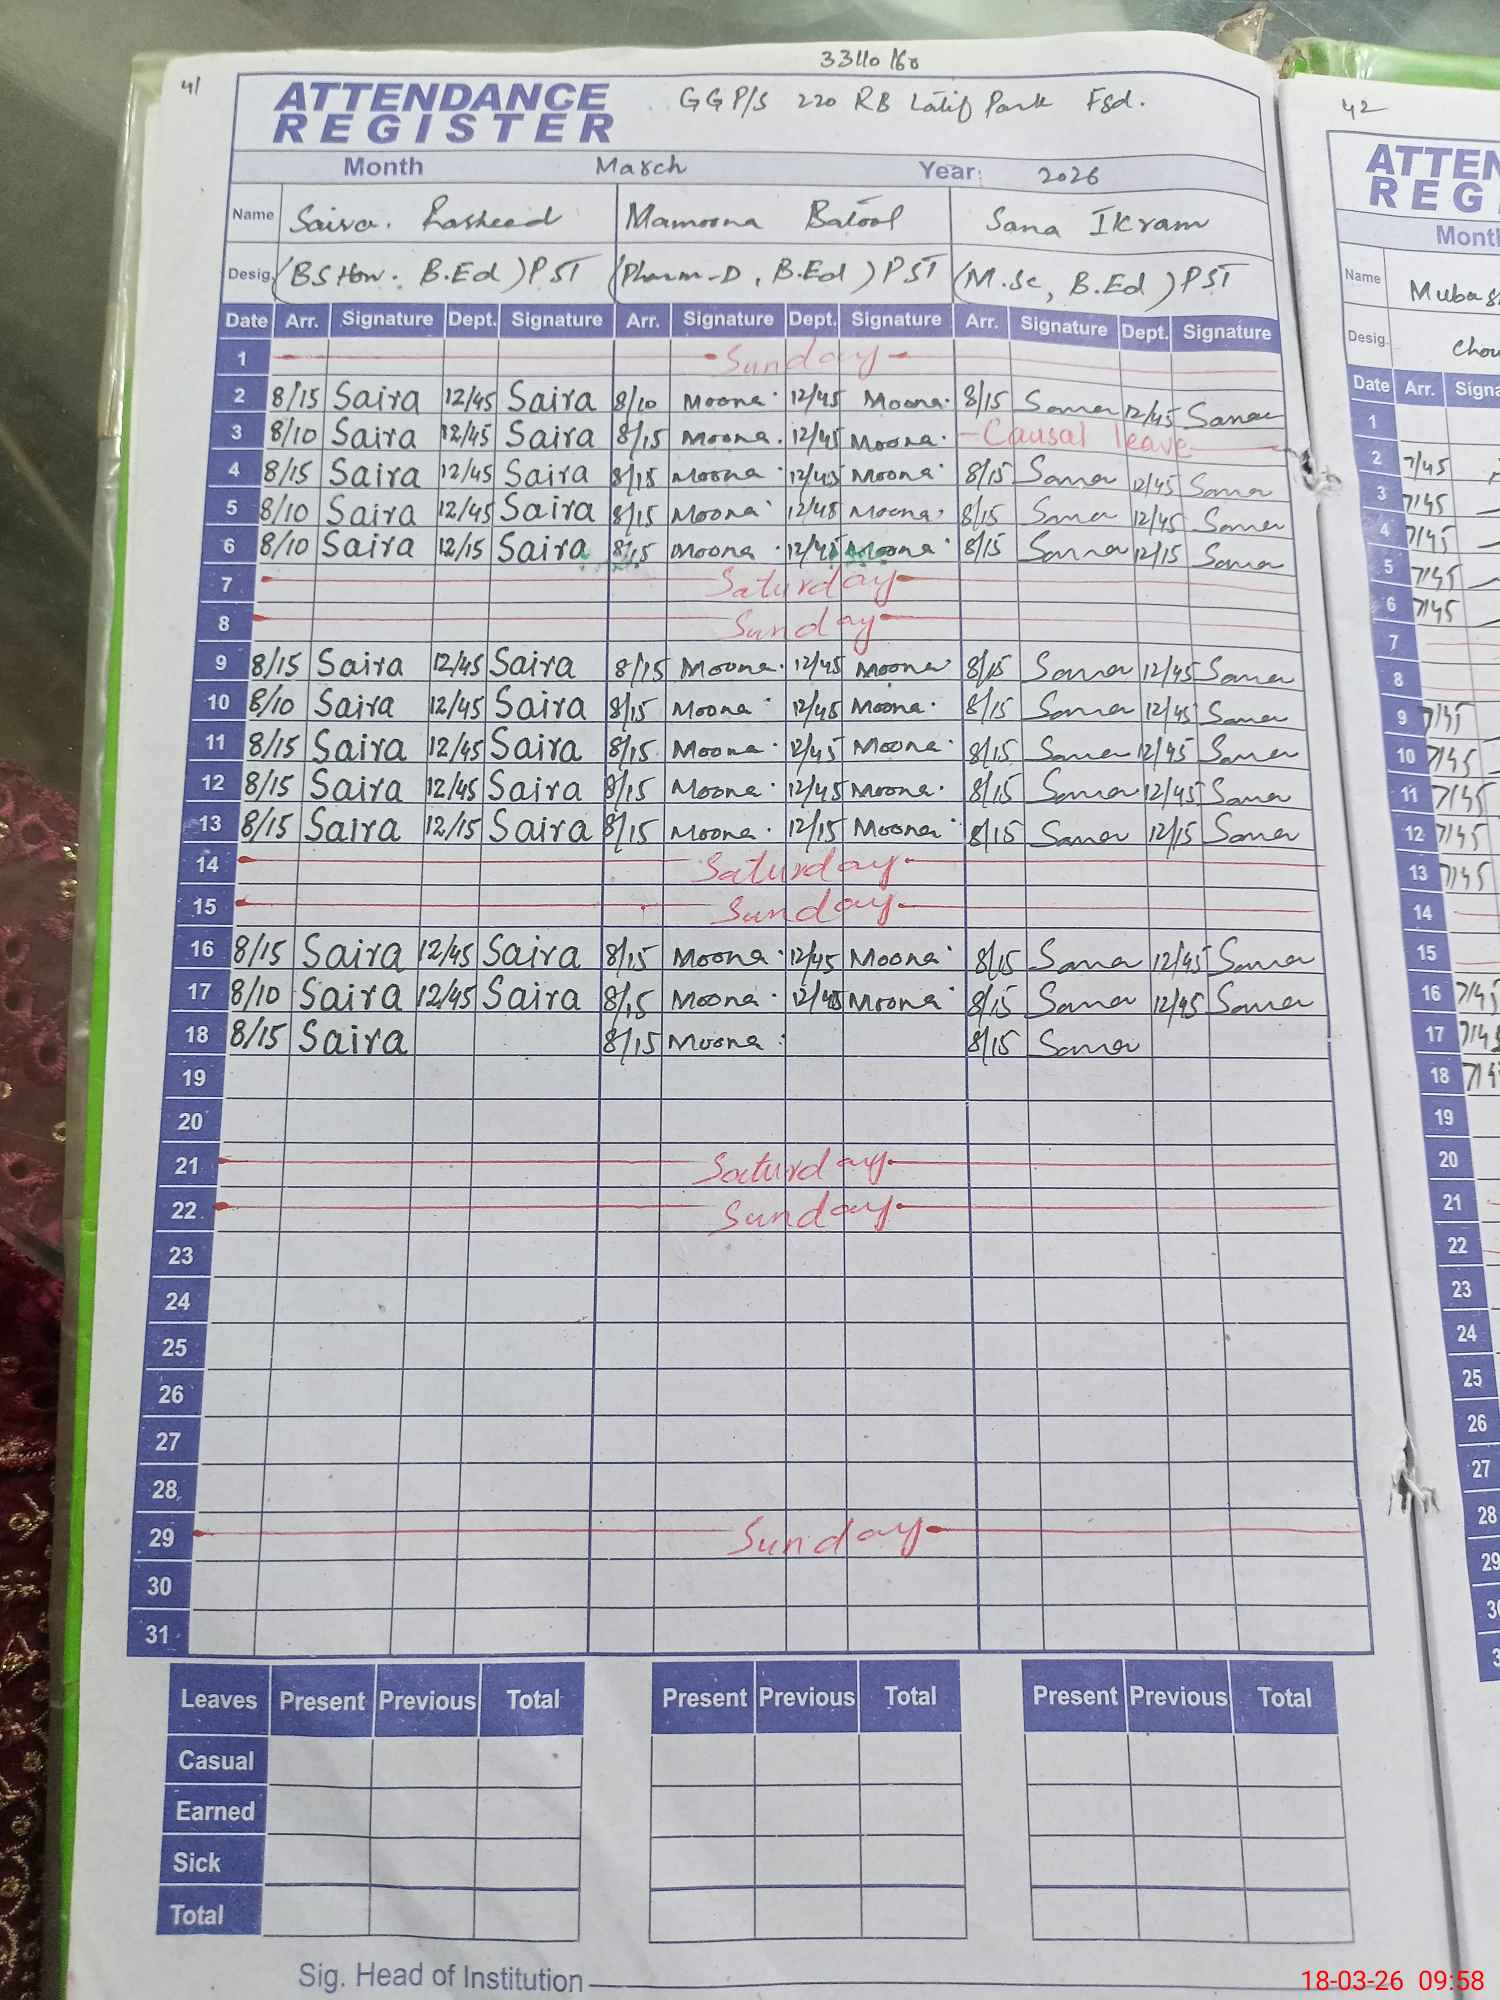 41
33110160
ATTENDANCE REGISTER
GGP/S 220 RB Latif Park Fsd.
Month March Year: 2026
Name Saira. Rasheed Mamoona Batool Sana Ikram
Desig. (BS Hon. B.Ed) PST (Pharm-D, B.Ed) PST (M.Sc, B.Ed) PST
Date Arr. Signature Dept. Signature Arr. Signature Dept. Signature Arr. Signature Dept. Signature
1 Sunday
2 8/15 Saira 12/45 Saira 8/10 Moona. 12/45 Moona. 8/15 Sana 12/45 Sana
3 8/10 Saira 12/45 Saira 8/15 Moona. 12/45 Moona. Causal leave
4 8/15 Saira 12/45 Saira 8/15 Moona. 12/45 Moona. 8/15 Sana 12/45 Sana
5 8/10 Saira 12/45 Saira 8/15 Moona. 12/45 Moona. 8/15 Sana 12/45 Sana
6 8/10 Saira 12/15 Saira 8/15 Moona. 12/45 Moona. 8/15 Sana 12/15 Sana
7 Saturday
8 Sunday
9 8/15 Saira 12/45 Saira 8/15 Moona. 12/45 Moona. 8/15 Sana 12/45 Sana
10 8/10 Saira 12/45 Saira 8/15 Moona. 12/45 Moona. 8/15 Sana 12/45 Sana
11 8/15 Saira 12/45 Saira 8/15 Moona. 12/45 Moona. 8/15 Sana 12/45 Sana
12 8/15 Saira 12/45 Saira 8/15 Moona. 12/45 Moona. 8/15 Sana 12/45 Sana
13 8/15 Saira 12/15 Saira 8/15 Moona. 12/15 Moona. 8/15 Sana 12/15 Sana
14 Saturday
15 Sunday
16 8/15 Saira 12/45 Saira 8/15 Moona. 12/45 Moona. 8/15 Sana 12/45 Sana
17 8/10 Saira 12/45 Saira 8/15 Moona. 12/45 Moona. 8/15 Sana 12/45 Sana
18 8/15 Saira 8/15 Moona. 8/15 Sana
19
20
21 Saturday
22 Sunday
23
24
25
26
27
28
29 Sunday
30
31
Leaves Present Previous Total Present Previous Total Present Previous Total
Casual
Earned
Sick
Total
Sig. Head of Institution
42
ATTEN
REG
Month
Name
Desig.
Date Arr. Signa
1
2 7/45
3 7/45
4 7/45
5 7/45
6 7/45
7
8
9 7/45
10 7/45
11 7/45
12 7/45
13 7/45
14
15
16 7/45
17 7/45
18
19
20
21
22
23
24
25
26
27
28
29
18-03-26 09:58